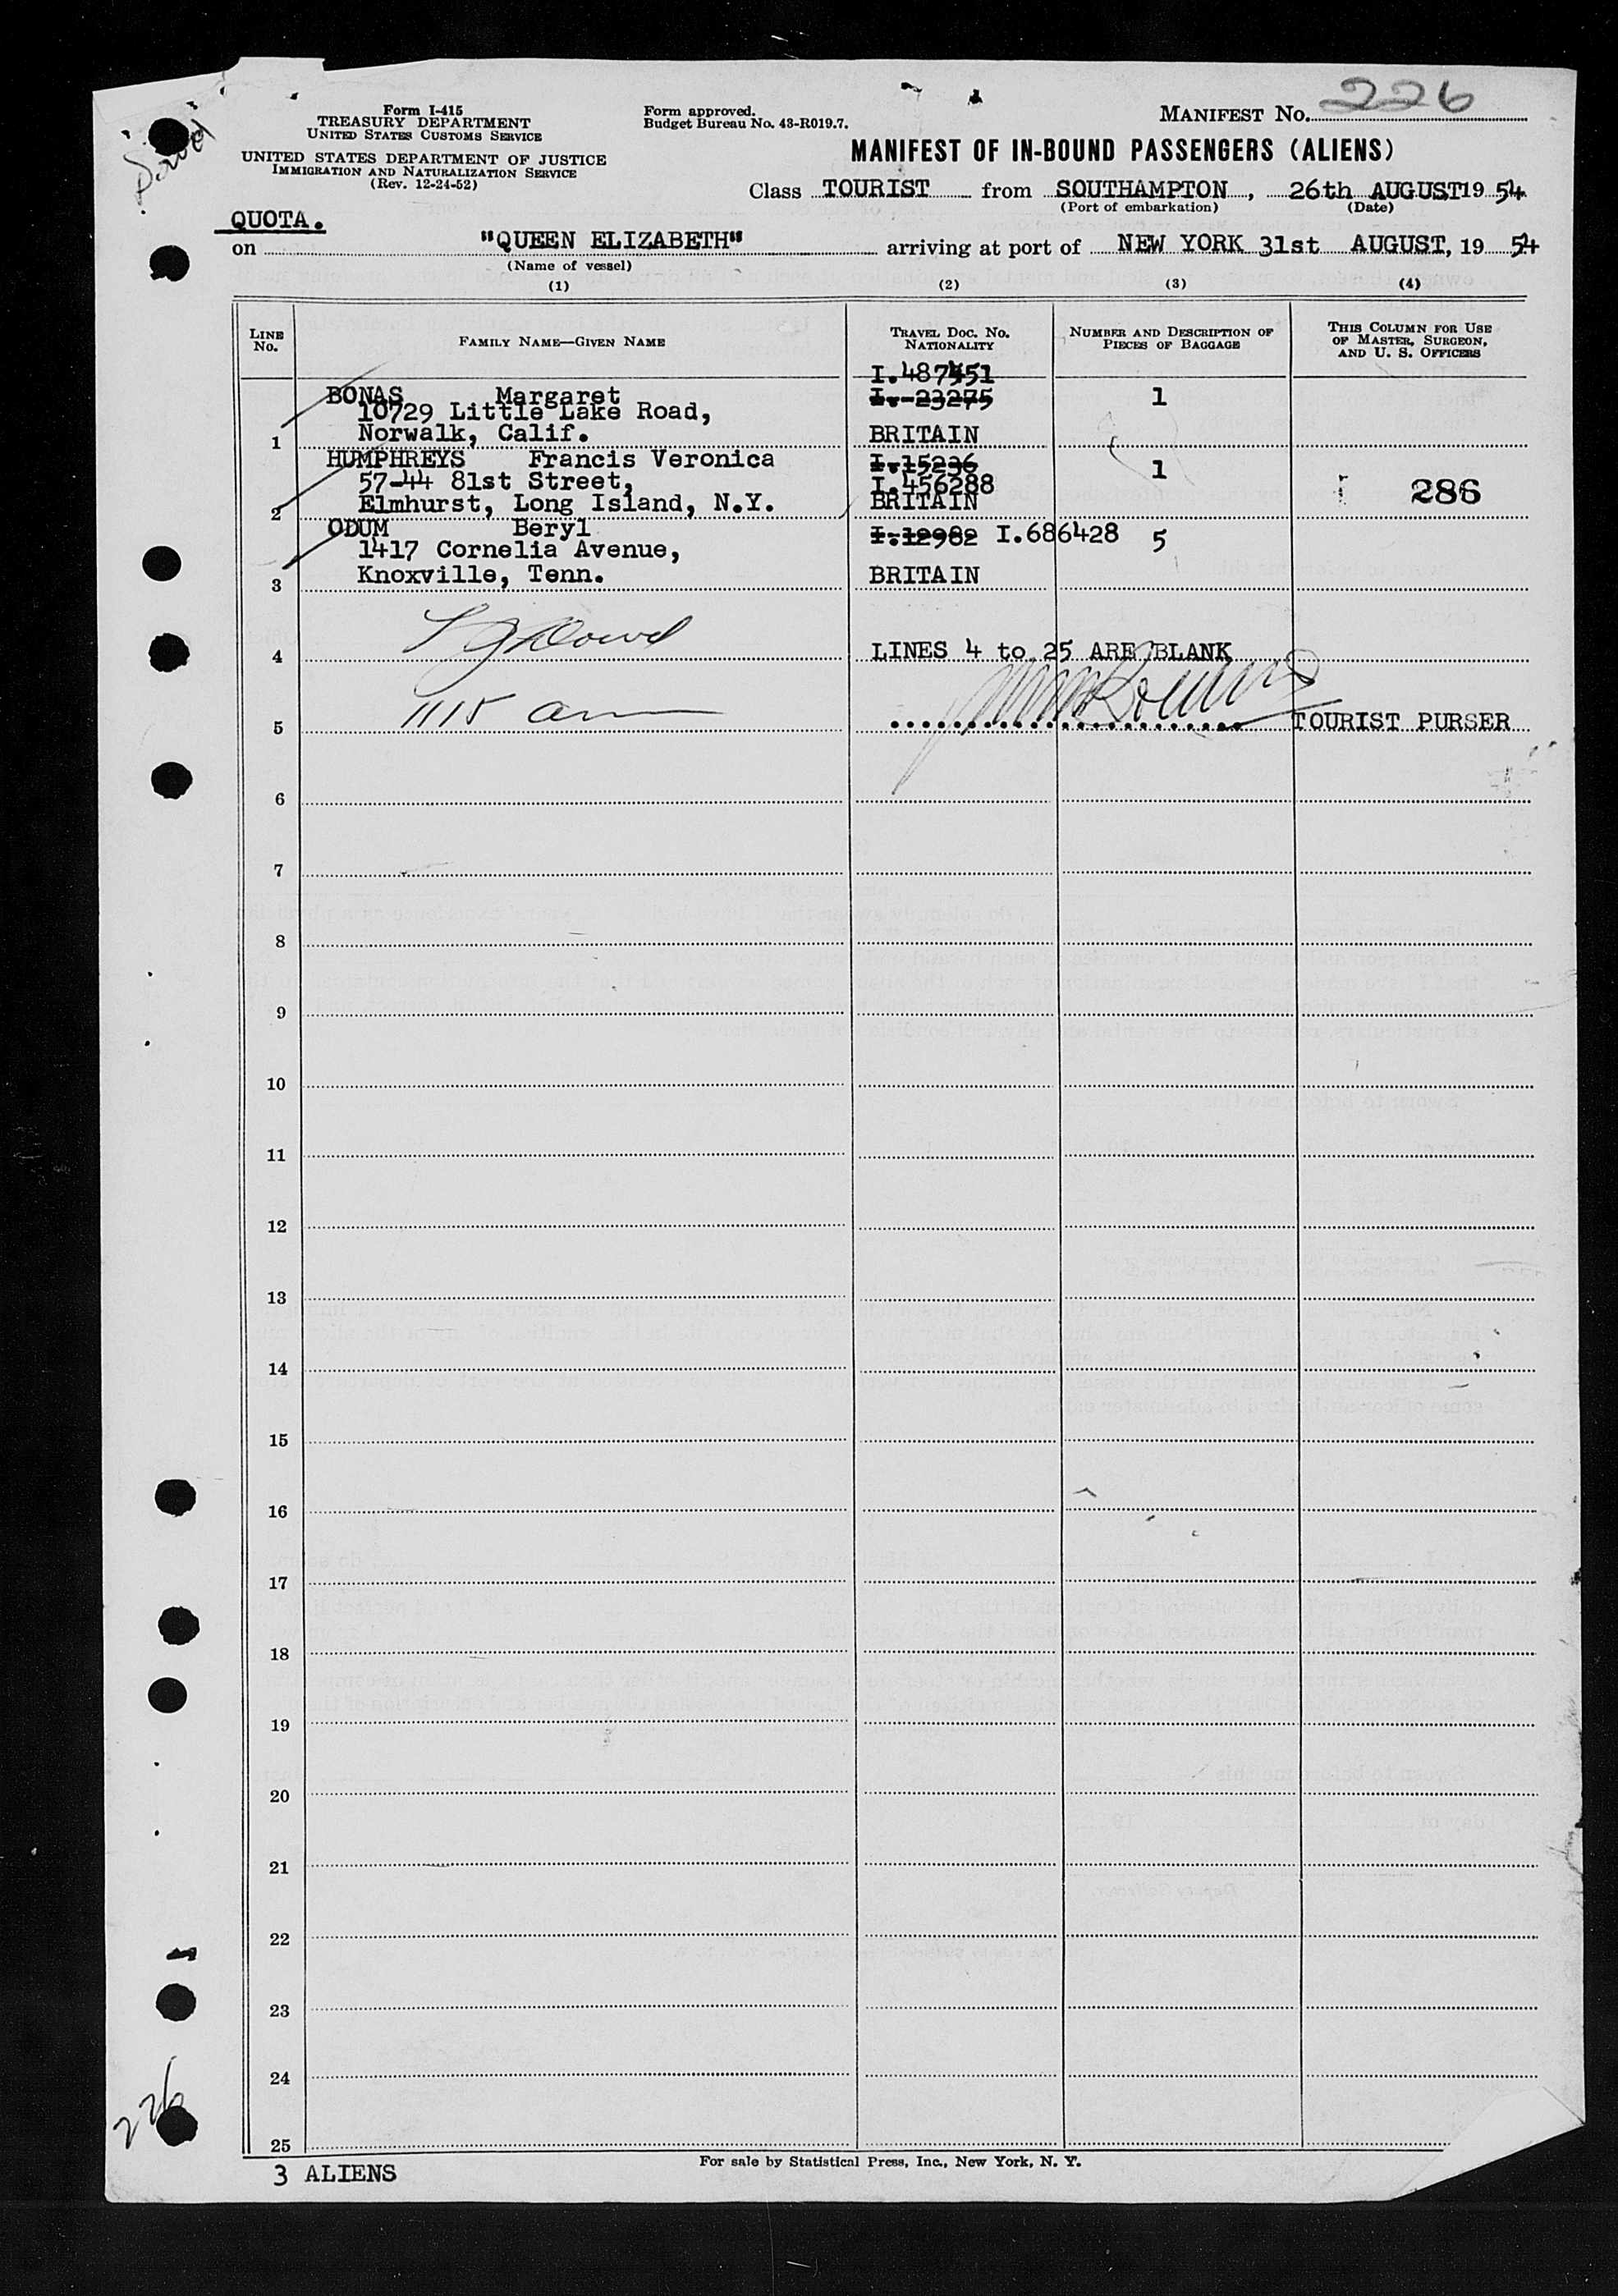 Form I-415
TREASURY DEPARTMENT
UNITED STATES CUSTOMS SERVICE
UNITED STATES DEPARTMENT OF JUSTICE
IMMIGRATION AND NATURALIZATION SERVICE
(Rev. 12-24-52)
Form approved.
Budget Bureau No. 43-R019.7.
MANIFEST No. 226
MANIFEST OF IN-BOUND PASSENGERS (ALIENS)
Class TOURIST from SOUTHAMPTON, 26th AUGUST 19 54
(Port of embarkation) (Date)
QUOTA.
on "QUEEN ELIZABETH" arriving at port of NEW YORK 31st AUGUST, 19 54
(Name of vessel)
(1) (2) (3) (4)
LINE No. FAMILY NAME—GIVEN NAME TRAVEL DOC. NO. NATIONALITY NUMBER AND DESCRIPTION OF PIECES OF BAGGAGE THIS COLUMN FOR USE OF MASTER, SURGEON, AND U. S. OFFICERS
I.487451
BONAS Margaret I.-23275 1
10729 Little Lake Road,
1 Norwalk, Calif. BRITAIN
HUMPHREYS Francis Veronica I.15236 1
57-44 81st Street, I.456288 286
2 Elmhurst, Long Island, N.Y. BRITAIN
ODUM Beryl I.12982 I.686428 5
1417 Cornelia Avenue,
3 Knoxville, Tenn. BRITAIN
4 LINES 4 to 25 ARE BLANK
1115 am
5 TOURIST PURSER
6
7
8
9
10
11
12
13
14
15
16
17
18
19
20
21
22
23
24
25
226
3 ALIENS
For sale by Statistical Press, Inc., New York, N. Y.